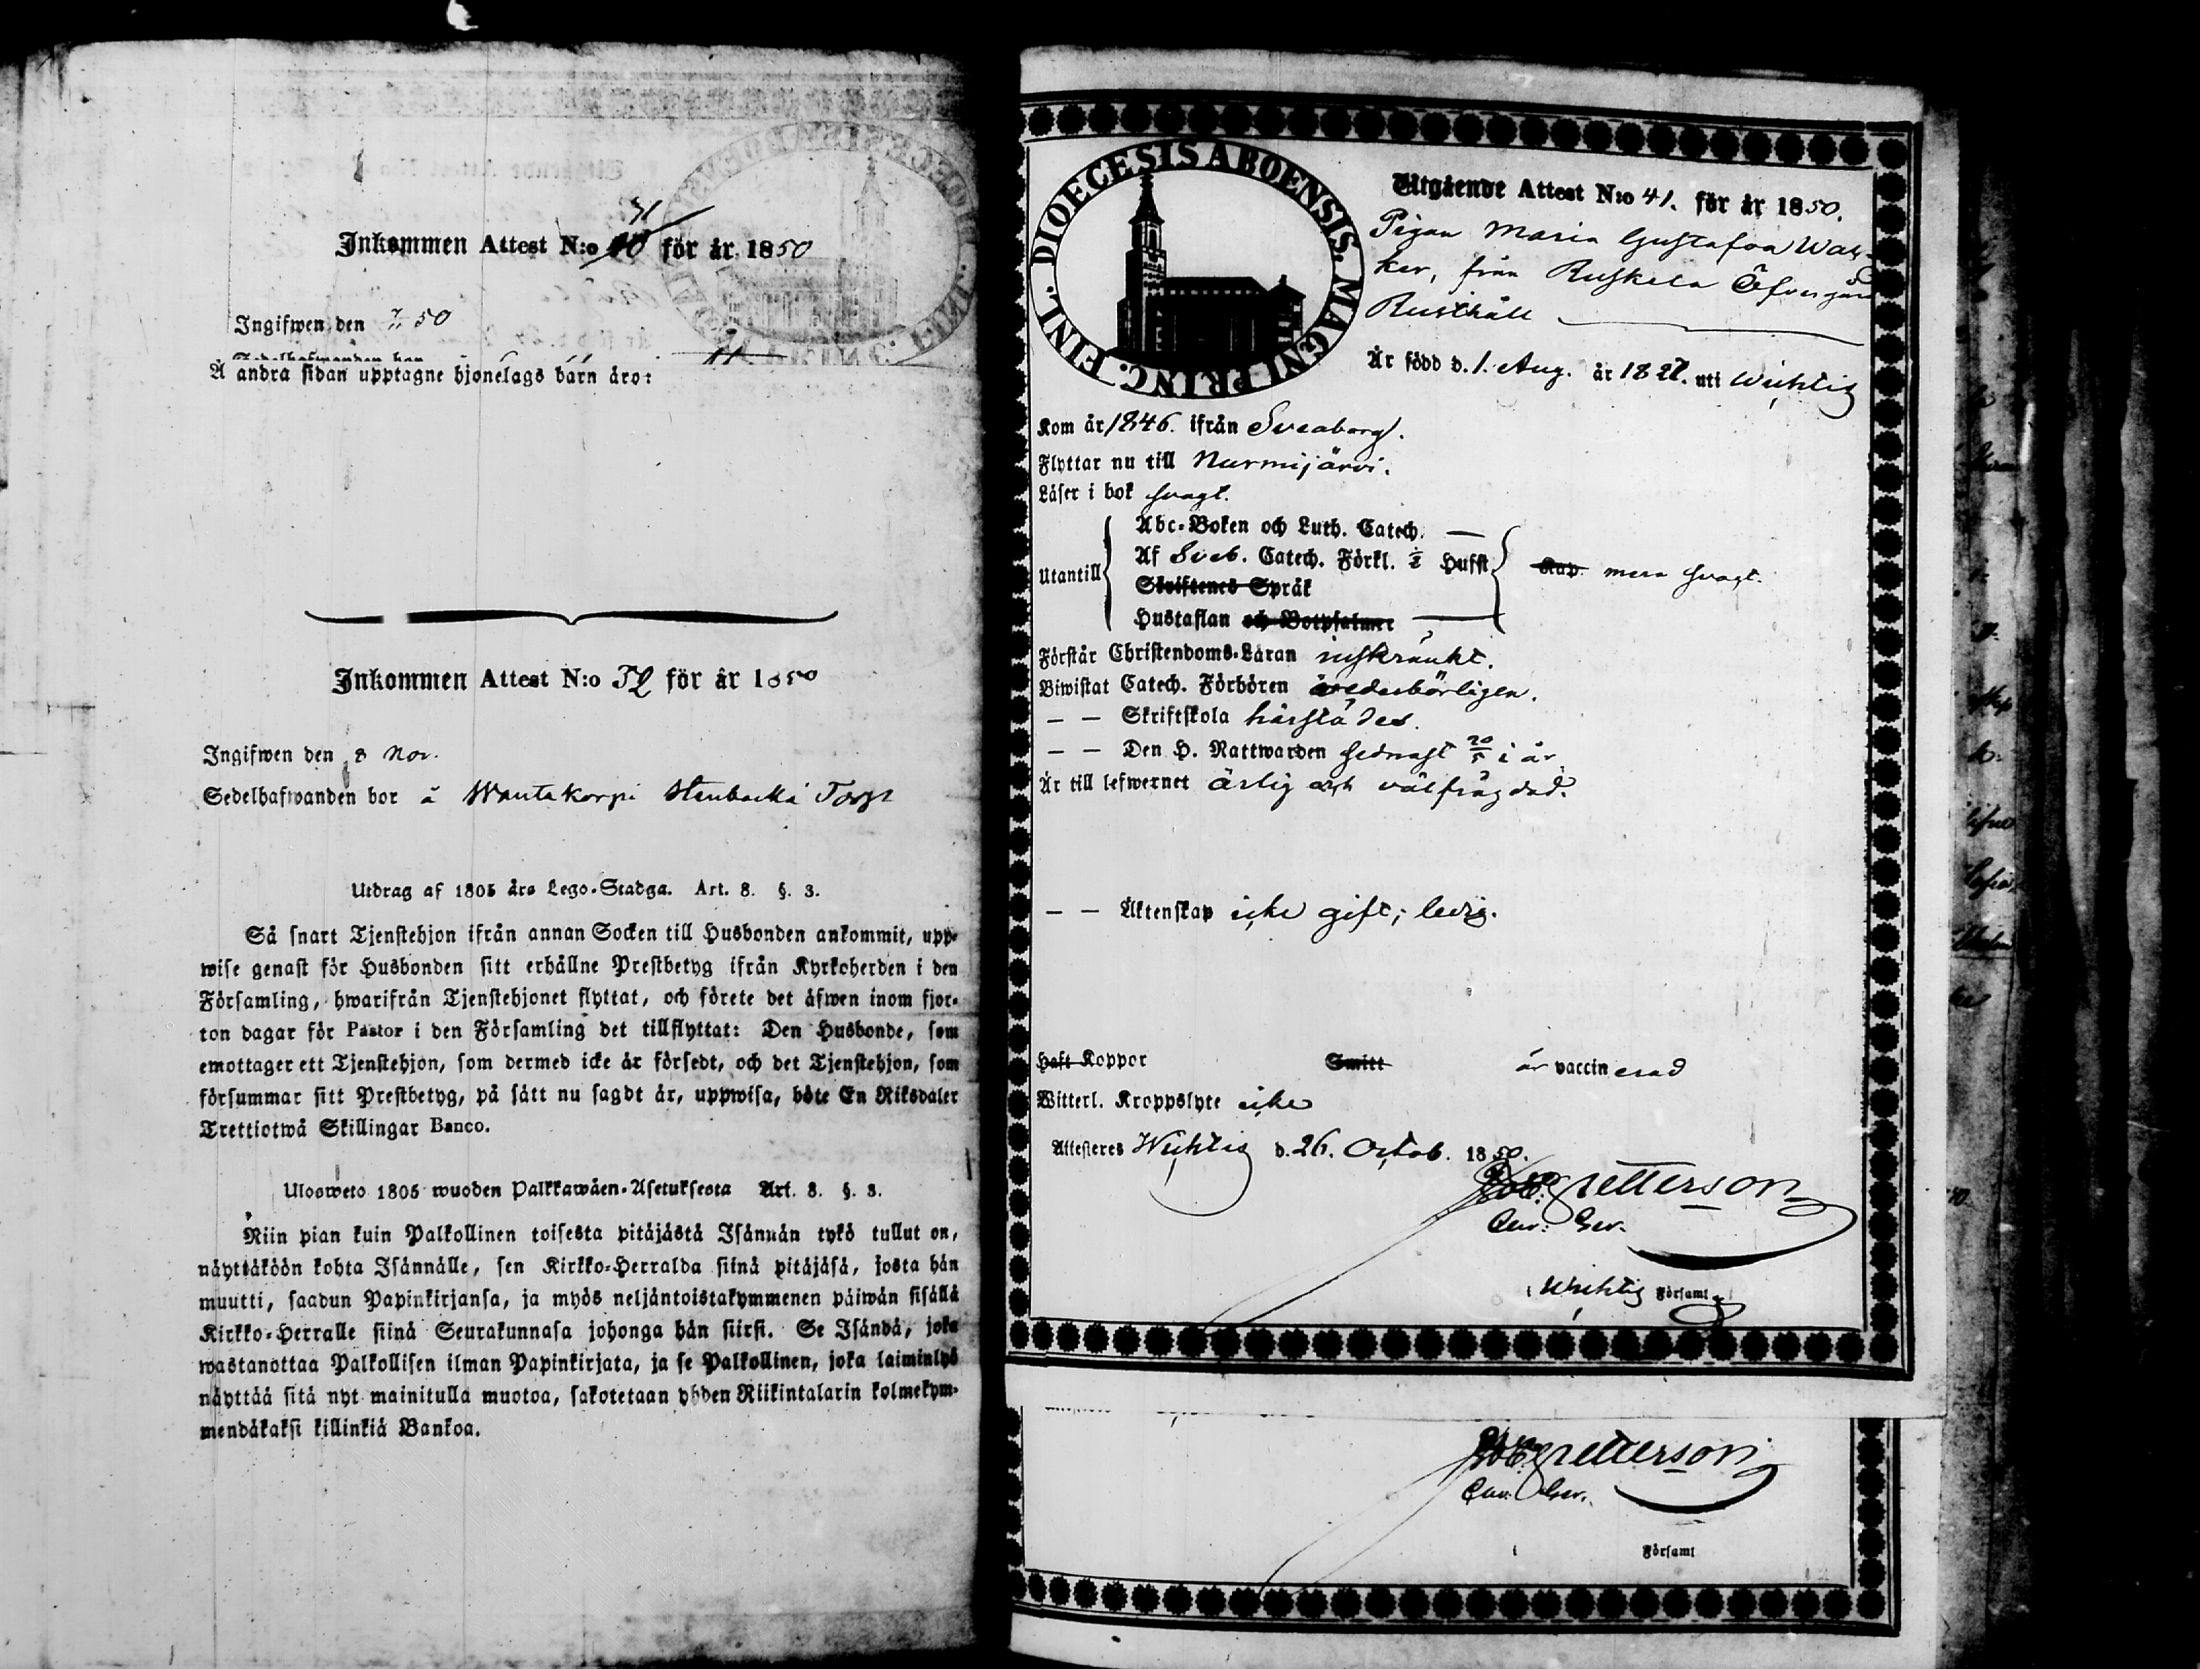 Inkommen Attest N:o 40 31 för år 1850
Ingifwen den 7/11 50
Å andra sidan upptagne hjonelags barn äro:
Inkommen Attest N:o 32 för år 1850
Ingifwen den 8 Nov.
Sedelhafwanden bor å Wantakorpi Stenbacka Torp
Utdrag af 1805 års Lego-Stadga. Art. 8. §. 3.
Så snart Tjenstehjon ifrån annan Socken till Husbonden ankommit, upp-
wise genast för Husbonden sitt erhållne Prestbetyg ifrån Kyrkoherden i den
Församling, hwarifrån Tjenstehjonet flyttat, och förete det äfwen inom fjor-
ton dagar för Pastor i den Församling det tillflyttat: Den Husbonde, som
emottager ett Tjenstehjon, som dermed icke är försedt, och det Tjenstehjon, som
försummar sitt Prestbetyg, på sätt nu sagdt är, uppwisa, böte En Riksdaler
Trettiotwå Skillingar Banco.
Ulosweto 1805 wuoden Palkkawäen-Asetuksesta Art. 8. §. 3.
Niin pian kuin Palkollinen toisesta pitäjästä Isännän tykö tullut on,
näyttäköön kohta Isännälle, sen Kirkko-Herralda siinä pitäjäsä, josta hän
muutti, saadun Papinkirjansa, ja myös neljäntoistakymmenen päiwän sisällä
Kirkko-Herralle siinä Seurakunnasa johonga hän siirsi. Se Isändä, joka
wastanottaa Palkollisen ilman Papinkirjata, ja se Palkollinen, joka laiminlyö
näyttää sitä nyt mainitulla muotoa, sakotetaan yhden Riikintalarin kolmekym-
mendäkaksi killinkiä Bankoa.
DIOECESIS ABOENSIS. MAGNI PRINC. FINL.
Utgående Attest N:o 41. för år 1850.
Pigan Maria Gustafva Wac-
ker, från Ruskela Öfvergård
Rusthåll
Är född d. 1. Aug. år 1827. uti Wichtis
Kom år 1846. ifrån Sveaborg.
Flyttar nu till Nurmijärvi.
Läser i bok svagt.
Utantill
Abc-Boken och Luth. Catech. —
Af Sveb. Catech. Förkl. ½ Hufst
Skriftenes Språk
Hustaflan och Botpsalmer —
Kap. mera svagt.
Förstår Christendoms-Läran inskränkt.
Biwistat Catech. Förhören vederbörligen.
— — Skriftskola härstädes.
— — Den H. Nattwarden sednast 20/5 i år.
Är till lefwernet ärlig och välfrägdad.
— — Äktenskap icke gift; ledig.
Haft Koppor Smitt är vaccinerad
Witterl. Kroppslyte icke
Attesteres Wichtis d. 26. Octob. 1850.
Petterson
Cur: Ger.
i Wichtis Församl
Petterson
Cur: Ger.
i Församl